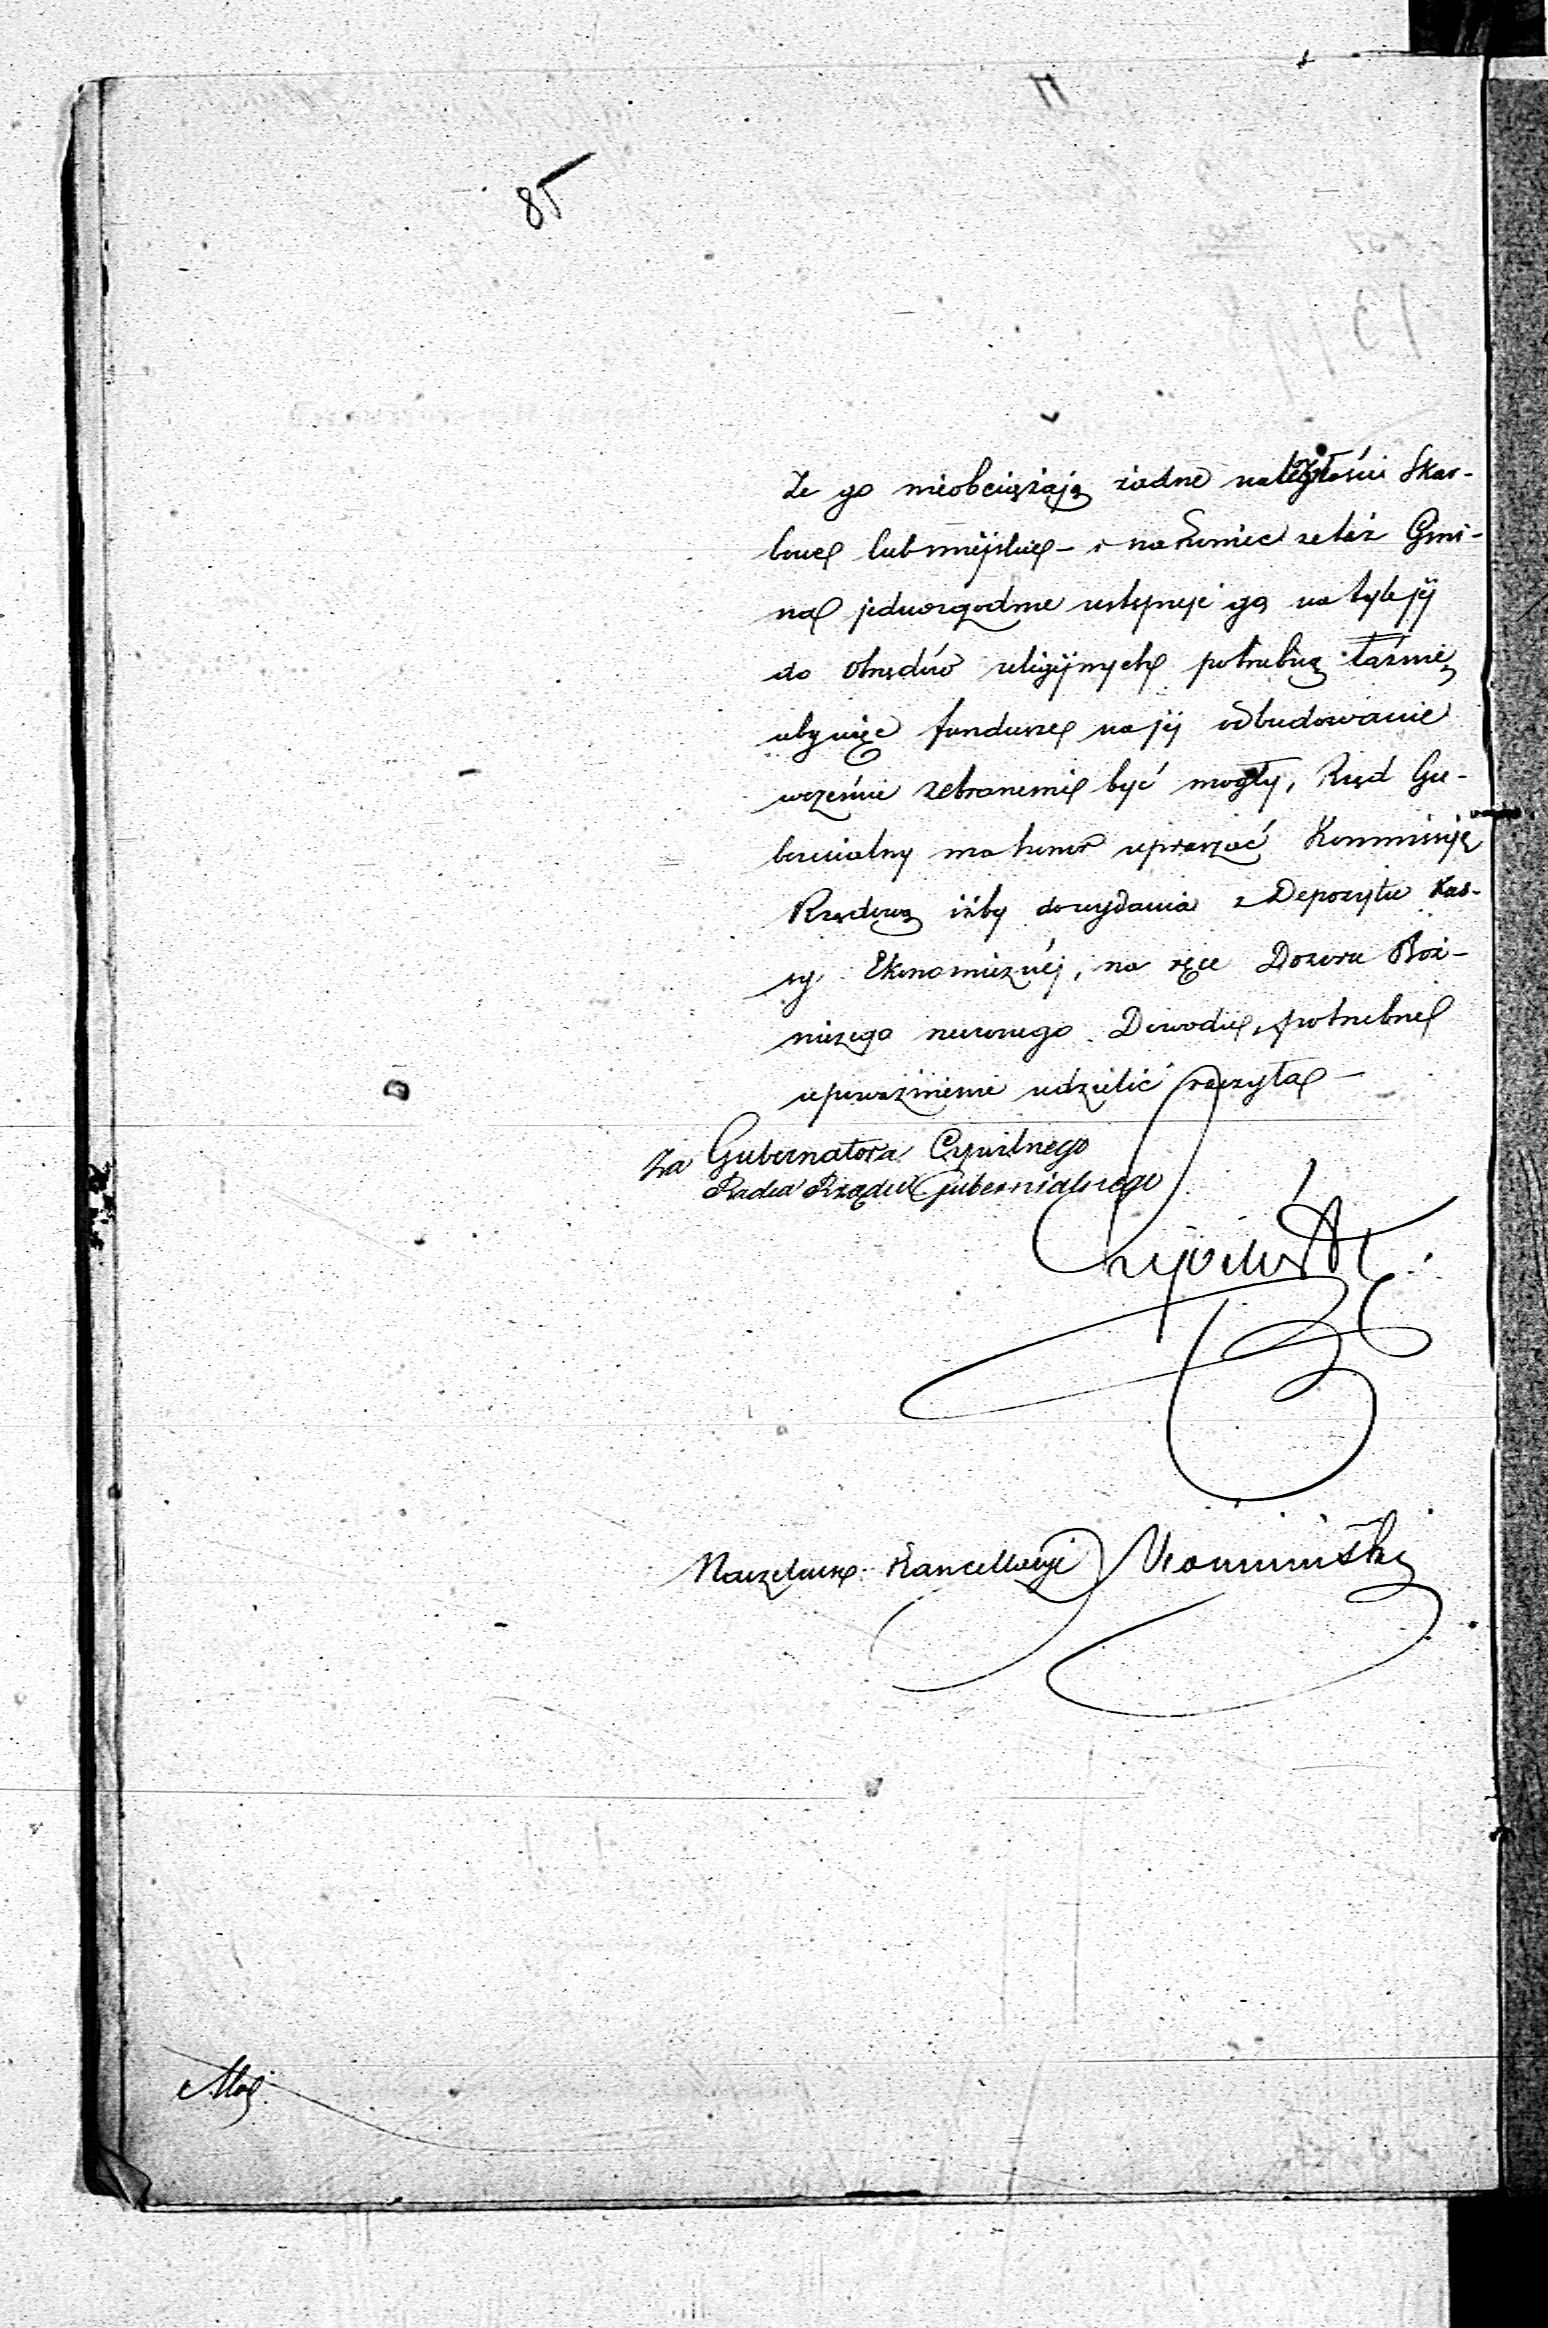 85
że go nieobciążają żadne należytości Skar-
bowe lub miejskie – i nakoniec że też Gmi-
na jednozgodnie ustępuje go na tyle jéj
do obrzędów religijnych potrzebną łaźnię,
aby więc fundusze na jéj odbudowanie
wcześnie zebranemi być mogły, Rząd Gu-
bernialny ma honor upraszać Kommissyę
Rządową iżby do wydania z Depozytu Kas-
sy Ekonomicznéj, na ręce Dozoru Boż-
niczego rzeczonego Dowodu, potrzebne
upoważnienie udzielić raczyła –
Za Gubernatora Cywilnego
Radca Rządu Gubernialnego
Naczelnik Kancellaryi